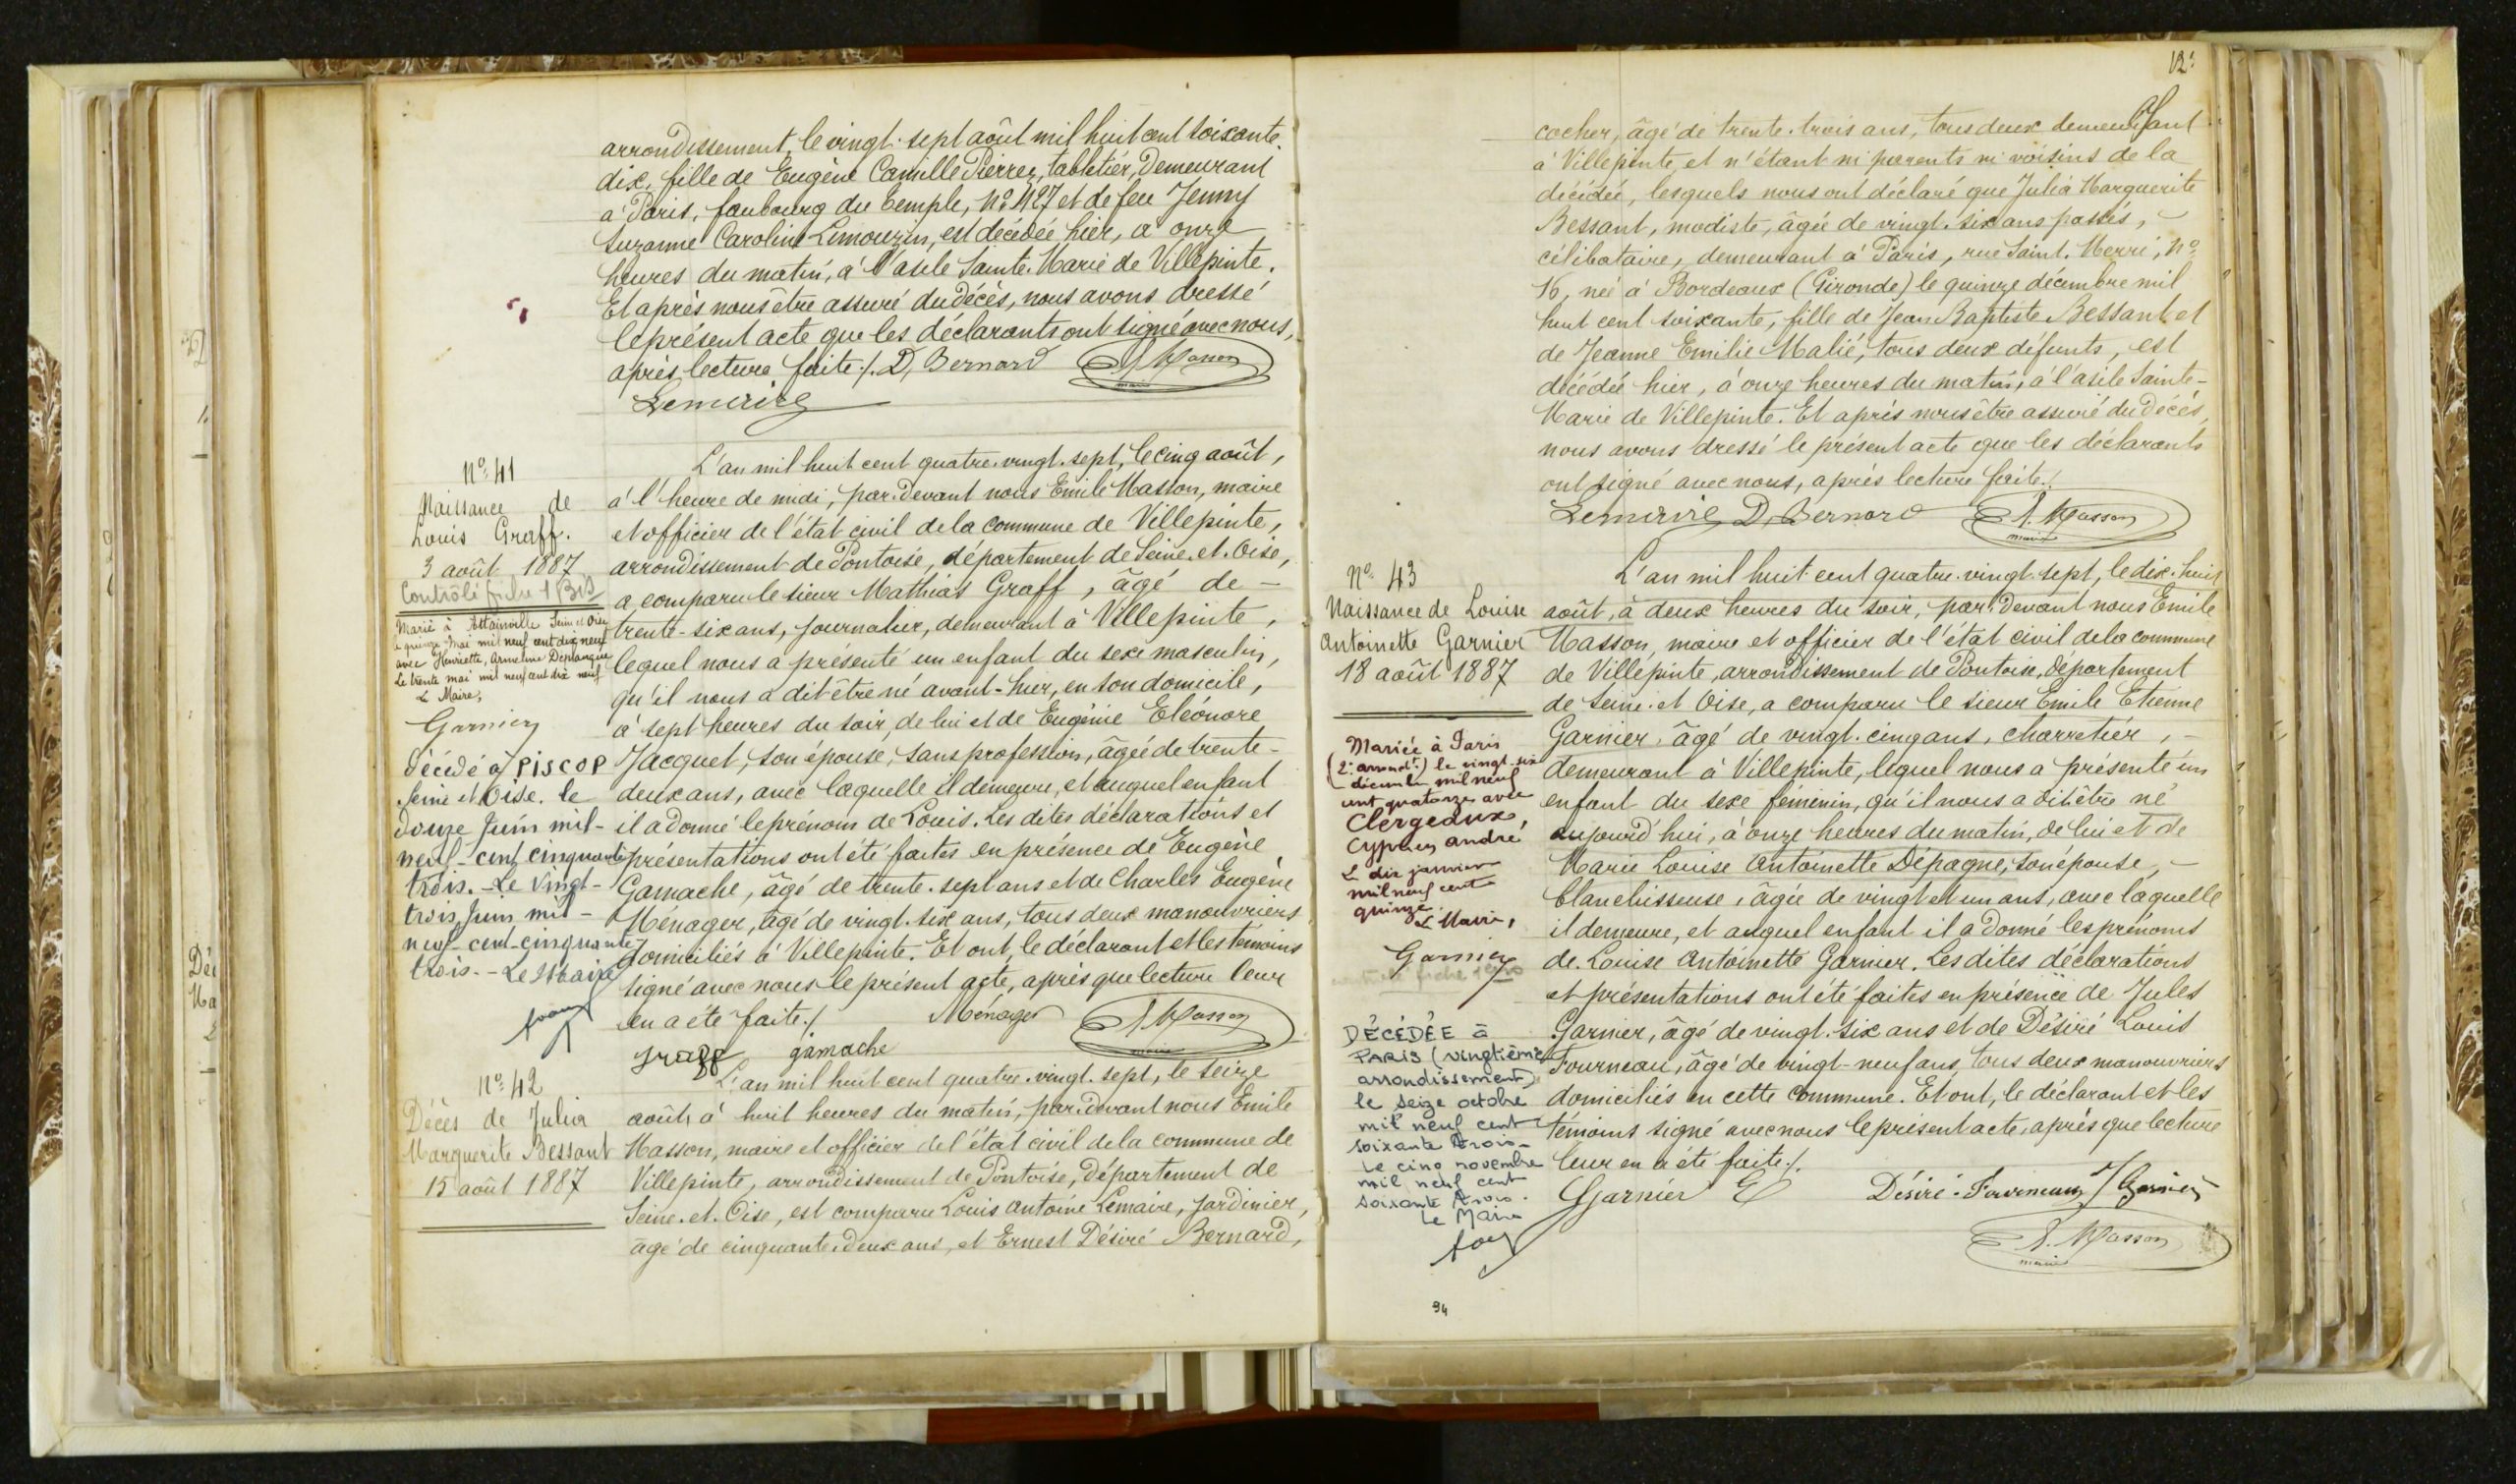 arrondissement, le vingt-sept août mil huit cent soixante-
dix, fille de Eugène Camille Pierrez, tabletier, demeurant
à Paris, faubourg du Temple, No 127 et de feu Jenny
Suzanne Caroline Limouzin, est décédée hier, à onze
heures du matin, à l'asile Sainte-Marie de Villepinte.
Et après nous être assuré du décès, nous avons dressé
le présent acte que les déclarants ont signé avec nous,
après lecture faite ./. D, Bernard E. Masson
maire
Lemaire
No 41
Naissance de
Louis Graff.
3 août 1887
Contrôlé fiche 1 Bis
Marié à Attainville Seine et Oise
le quinze Mai mil neuf cent dix neuf
avec Henriette, Armeline Deplanque
Le trente mai mil neuf cent dix neuf
Le Maire,
Garnier
décédé à PISCOP
Seine et Oise. le
douze Juin mil-
neuf-cent cinquante
trois. - Le Vingt-
trois Juin mil-
neuf-cent-cinquante
trois. - Le Maire
L'an mil huit cent quatre-vingt-sept, le cinq août,
à l'heure de midi, par-devant nous Emile Masson, maire
et officier de l'état civil de la commune de Villepinte,
arrondissement de Pontoise, département de Seine-et-Oise,
a comparu le sieur Mathias Graff, âgé de -
trente-six ans, journalier, demeurant à Villepinte,
lequel nous a présenté un enfant du sexe masculin,
qu'il nous a dit être né avant-hier, en son domicile,
à sept heures du soir, de lui et de Eugénie Eléonore
Jacquet, son épouse, sans profession, âgée de trente-
deux ans, avec laquelle il demeure, et auquel enfant
il a donné le prénom de Louis. Les dites déclarations et
présentations ont été faites en présence de Eugène
Gamache, âgé de trente-sept ans et de Charles Eugène
Ménager, âgé de vingt-six ans, tous deux manouvriers
domiciliés à Villepinte. Et ont, le déclarant et les témoins
signé avec nous le présent acte, après que lecture leur
en a été faite ./. Ménager E. Masson
maire
graff gamache
No 42
Décès de Julia
Marguerite Bessant
15 août 1887
L'an mil huit cent quatre-vingt-sept, le seize
août, à huit heures du matin, par-devant nous Emile
Masson, maire et officier de l'état civil de la commune de
Villepinte, arrondissement de Pontoise, département de
Seine-et-Oise, est comparu Louis Antoine Lemaire, jardinier,
âgé de cinquante-deux ans, et Ernest Désiré Bernard,
12
cocher, âgé de trente-trois ans, tous deux demeurant
à Villepinte et n'étant ni parents ni voisins de la
décédée, lesquels nous ont déclaré que Julia Marguerite
Bessant, modiste, âgée de vingt-six ans passés,
célibataire, demeurant à Paris, rue Saint-Merri, No
16, née à Bordeaux (Gironde) le quinze décembre mil
huit cent soixante, fille de Jean Baptiste Bessant et
de Jeanne Emilie Malié, tous deux défunts, est
décédée hier, à onze heures du matin, à l'asile Sainte-
Marie de Villepinte. Et après nous être assuré du décès,
nous avons dressé le présent acte que les déclarants
ont signé avec nous, après lecture faite ./.
Lemaire D, Bernard E. Masson
maire
No 43
Naissance de Louise
Antoinette Garnier
18 août 1887
Mariée à Paris
(2e arrondt.) le vingt-six
décembre mil neuf
cent quatorze avec
Clergeaux,
Cyprien André
Le dix janvier
mil neuf cent
quinze.
Le Maire,
Garnier
DÉCÉDÉE à
PARIS (vingtième
arrondissement)
le seize octobre
mil neuf cent
soixante trois-
Le cinq novembre
mil neuf cent
soixante trois.
Le Maire
L'an mil huit cent quatre-vingt-sept, le dix-huit
août, à deux heures du soir, par-devant nous Emile
Masson, maire et officier de l'état civil de la commune
de Villepinte, arrondissement de Pontoise, département
de Seine-et-Oise, a comparu le sieur Emile Etienne
Garnier, âgé de vingt-cinq ans, charretier, -
demeurant à Villepinte, lequel nous a présenté un
enfant du sexe féminin, qu'il nous a dit être né
aujourd'hui, à onze heures du matin, de lui et de
Marie Louise Antoinette Dépagne, son épouse, -
blanchisseuse, âgée de vingt et un ans, avec laquelle
il demeure, et auquel enfant il a donné les prénoms
de Louise Antoinette Garnier. Les dites déclarations
et présentations ont été faites en présence de Jules
Garnier, âgé de vingt-six ans et de Désiré Louis
Fourneau, âgé de vingt-neuf ans, tous deux manouvriers
domiciliés en cette commune. Et ont, le déclarant et les
témoins signé avec nous le présent acte, après que lecture
leur en a été faite ./.
Garnier E Désiré Fourneau J Garnier
E. Masson
maire
94